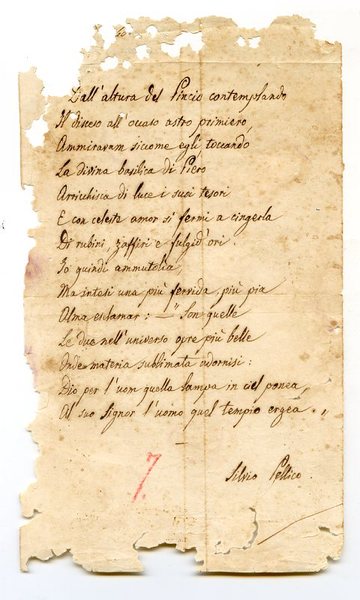 Dall'altura del Pincio contemplando
Il disceso all'occaso astro primiero,
Ammiravam siccome egli toccando
La divina basilica di Piero
Arricchisca di luce i suoi tesori
E con celeste amor si fermi a cingerla
Di rubini, zaffiri e fulgid'ori.
Io quindi ammutolia,
Ma intesi una più fervida, più pia
Alma esclamar: — " Son quelle
Le due nell'universo opre più belle
Onde materia sublimata adornisi:
Dio per l'uom quella lampa in ciel ponea,
Al suo Signor l'uomo quel tempio ergea. "
Silvio Pellico
7.